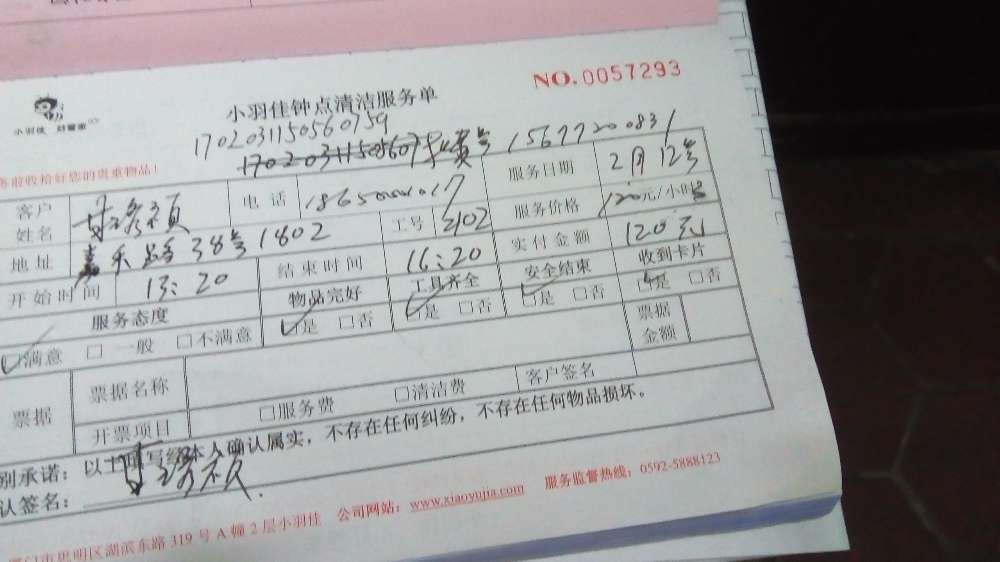 NO.0057293
小羽佳 好管家
小羽佳钟点清洁服务单
1702031150560759
15677200831
务前收拾好您的贵重物品!
客户姓名 电话 服务日期 2月12号
地址 嘉禾路38号1802 工号 2102 服务价格 120元/小时
开始时间 13:20 结束时间 16:20 实付金额 120元
服务态度 物品完好 工具齐全 安全结束 收到卡片
☑满意 □一般 □不满意 ☑是 □否 ☑是 □否 ☑是 □否 ☑是 □否
票据 票据名称 票据金额
开票项目 □服务费 □清洁费 客户签名
别承诺:以上填写经本人确认属实,不存在任何纠纷,不存在任何物品损坏。
认签名:
公司网站:www.xiaoyujia.com 服务监督热线:0592-5888123
厦门市思明区湖滨东路319号A幢2层小羽佳